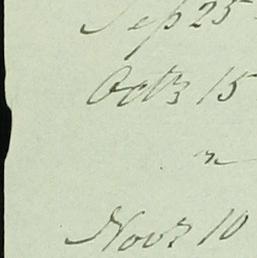 Sep 25
Octr 15
"
Novr 10